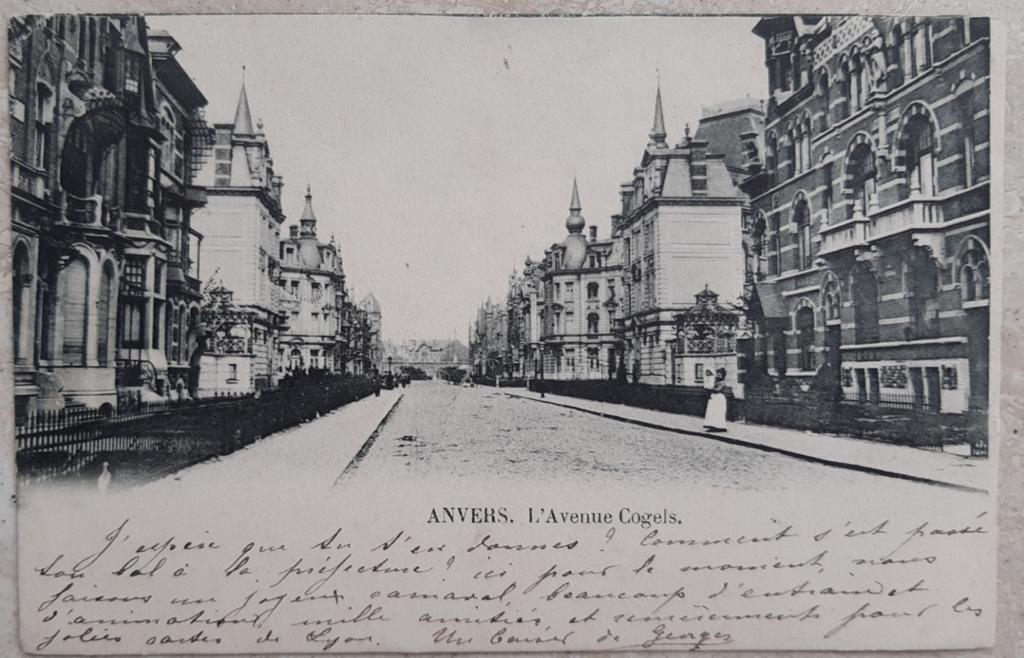 ANVERS. L'Avenue Cogels.
J'espère que tu t'en donnes ? Comment s'est passé
ton bal à la préfecture ? ici pour le moment, nous
faisons un joyeux carnaval beaucoup d'entrain et
d'animation, mille amitiés et remerciements pour les
jolies cartes de Lyon. Un baiser de Georges